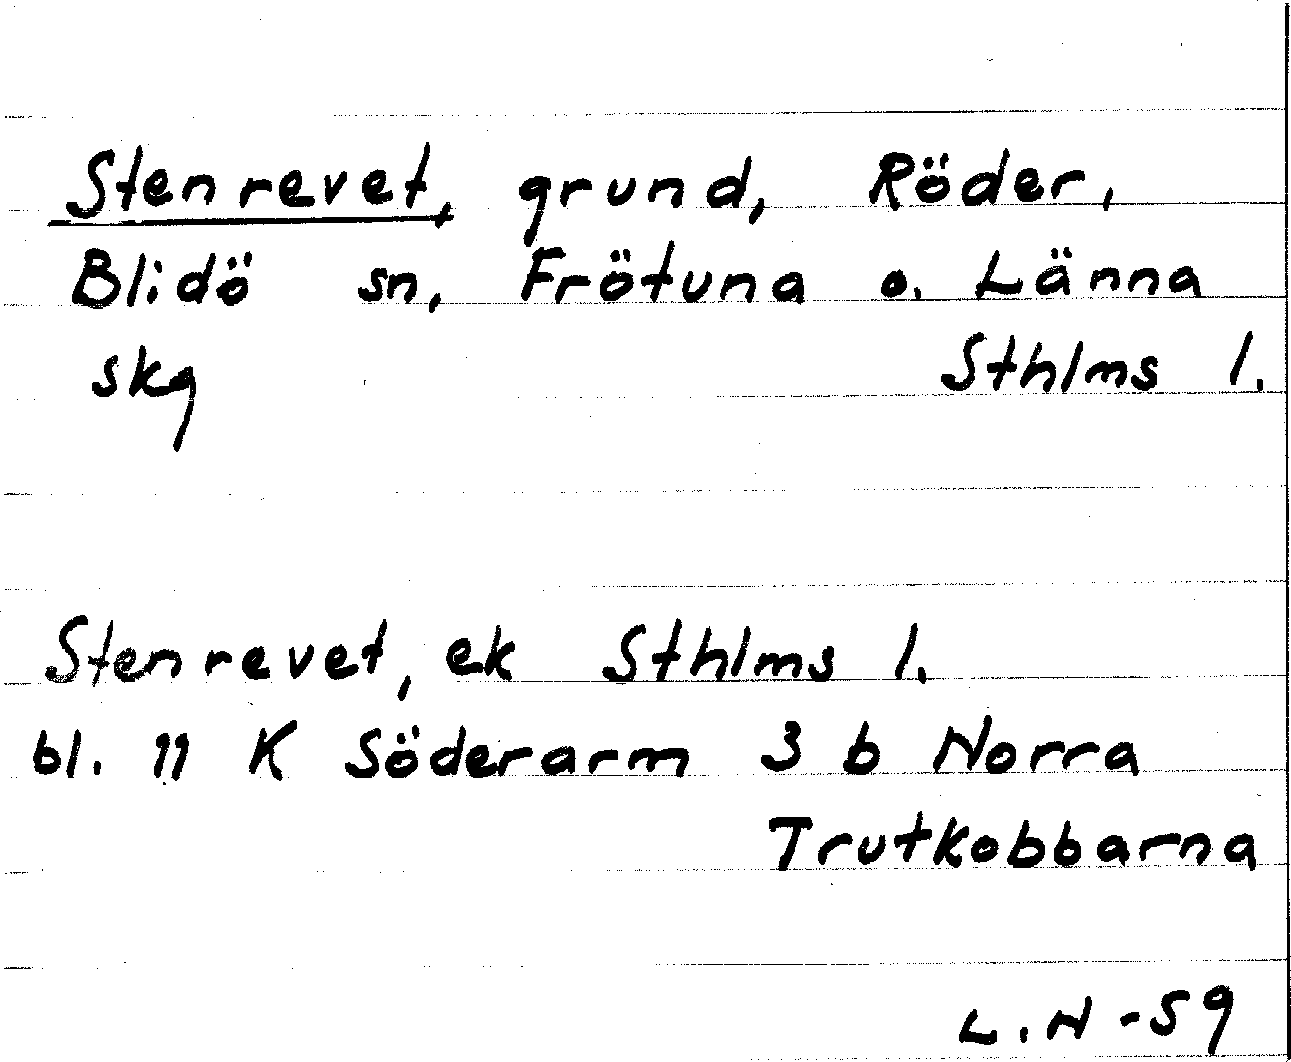 Stenrevet, grund, Röder,
Blidö sn, Frötuna o. Länna
skg Sthlms l.
Stenrevet, ek Sthlms l.
bl. 11 K Söderarm 3 b Norra
Trutkobbarna
L.N -59